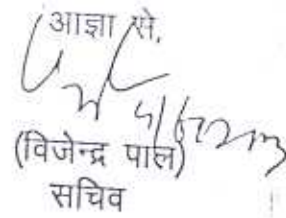 आज्ञा से,
(विजेन्द्र पाल)
सचिव